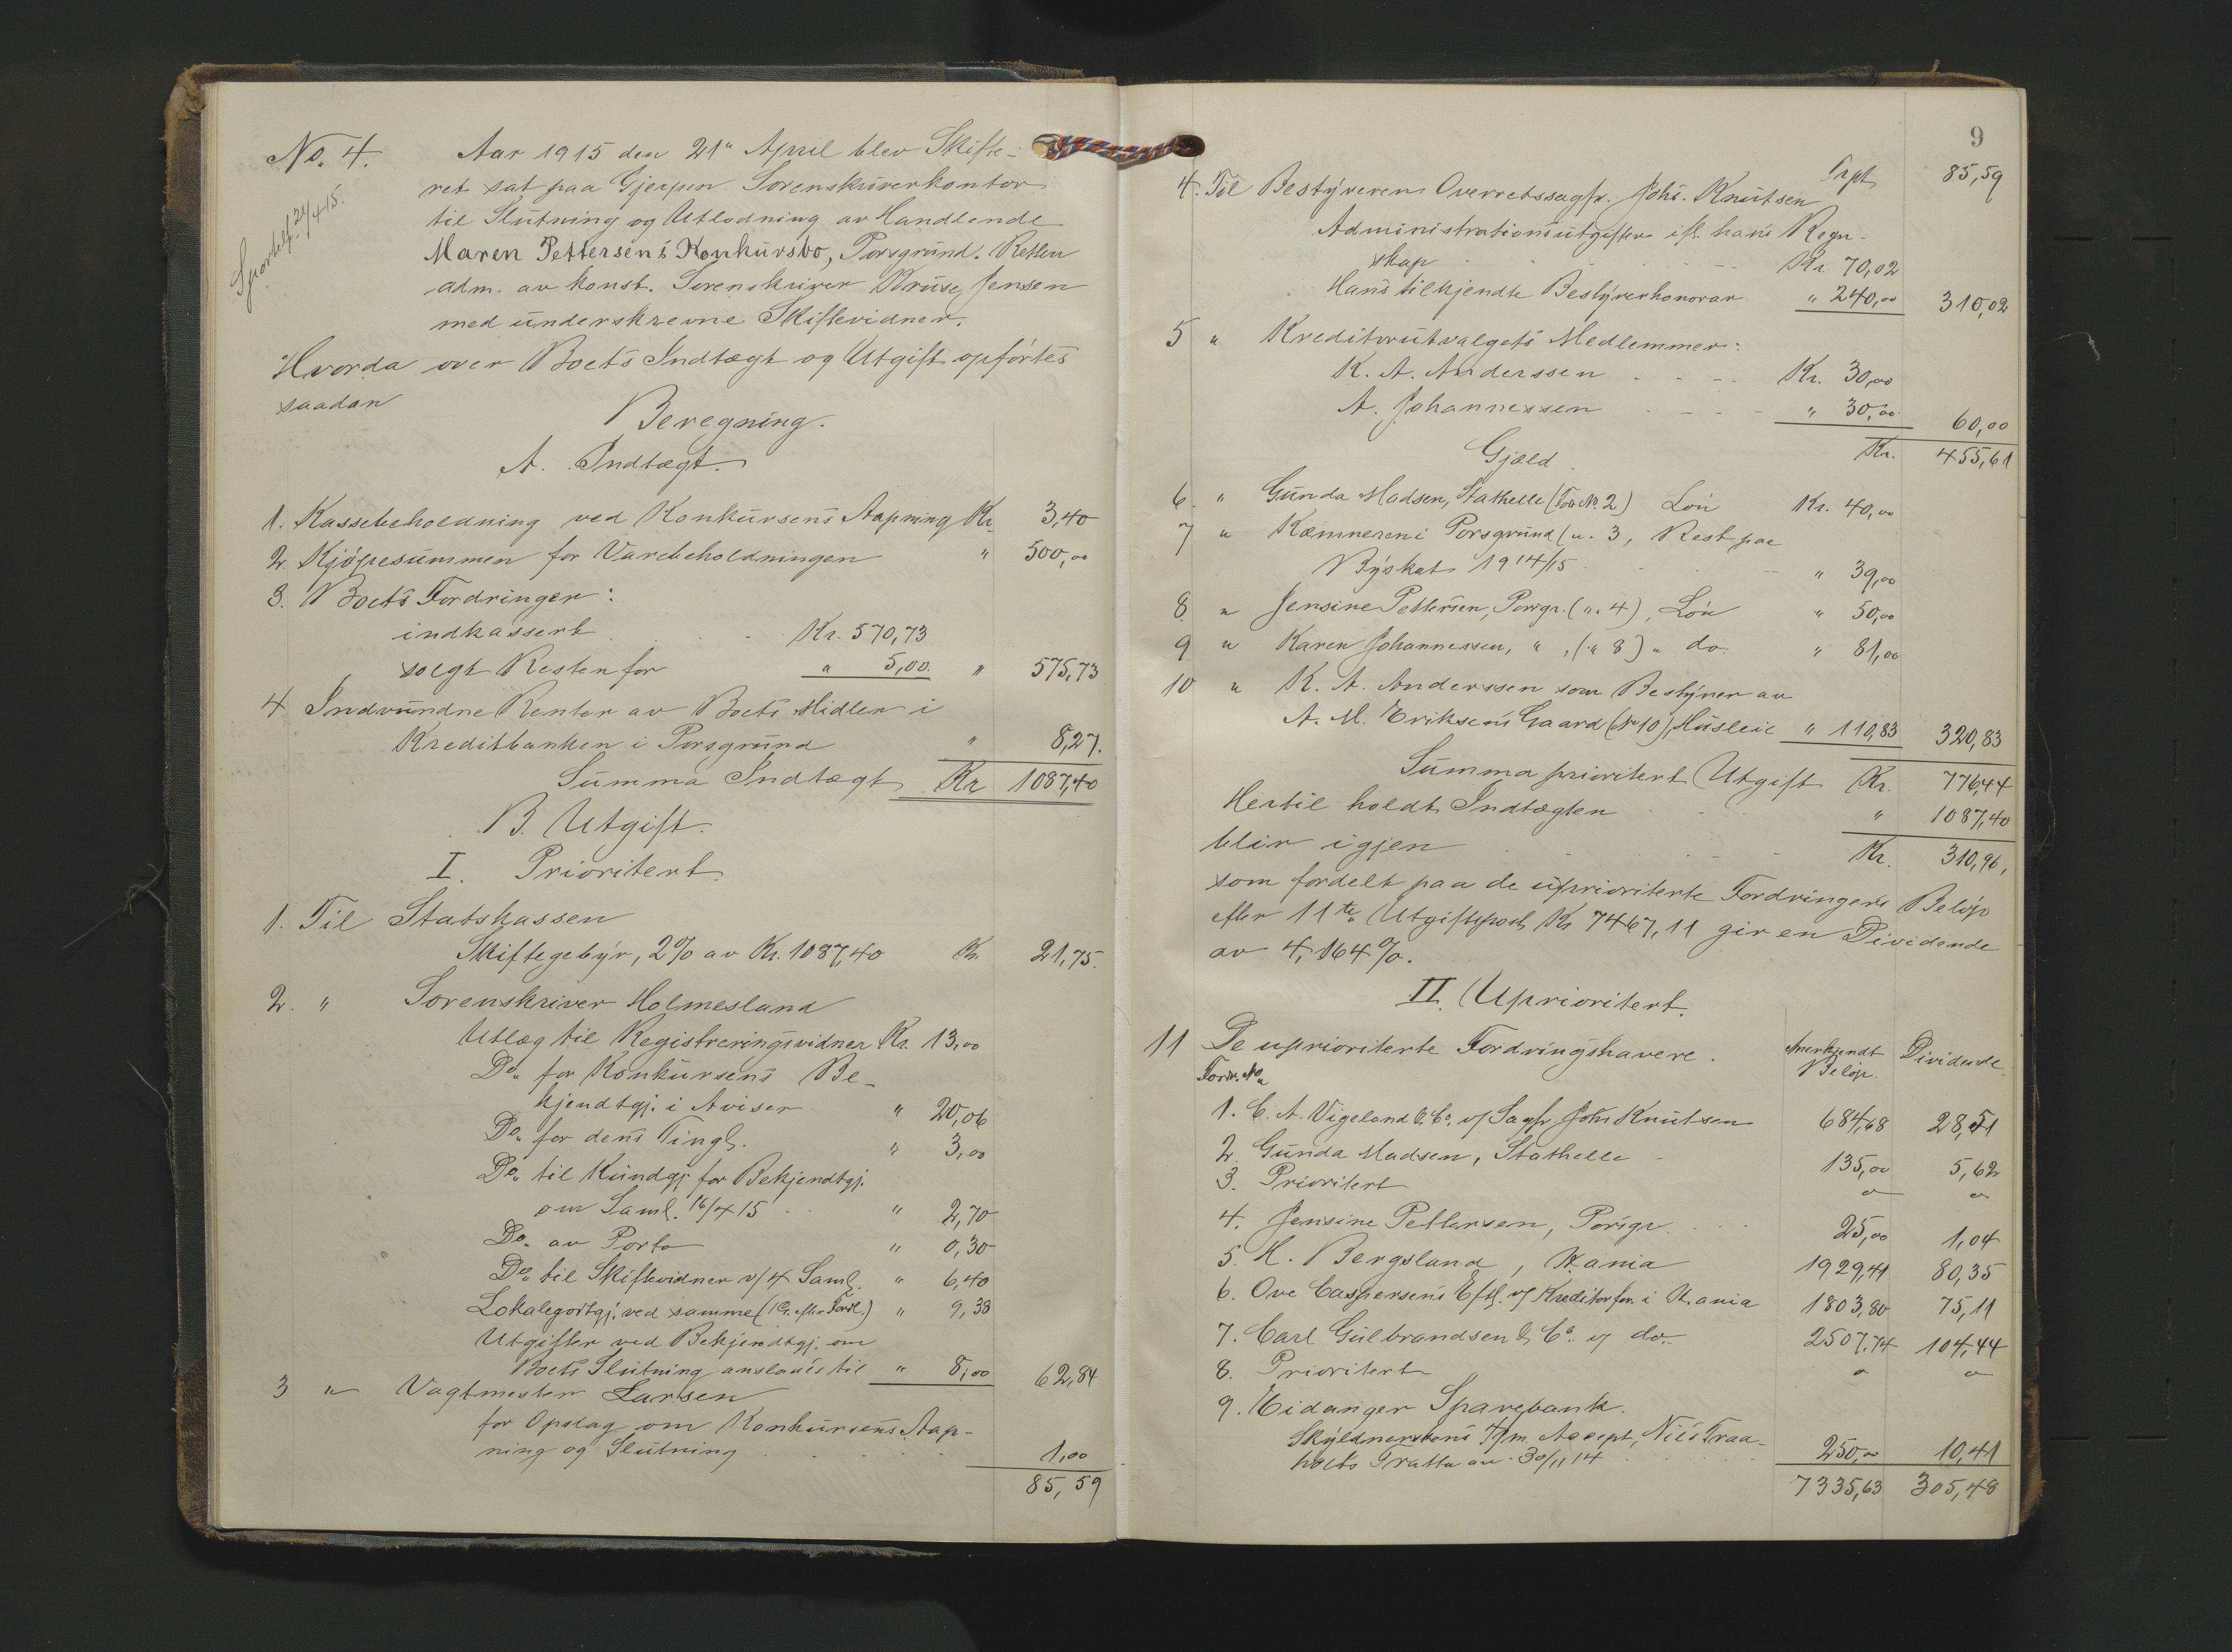 No. 4.
Sportelf. 21/4 15.
Aar 1915 den 21de April blev Skifte-
ret sat paa Gjerpen Sorenskriverkontor
til Slutning og Utlodning av Handlende
Maren Pettersen's Konkursbo, Porsgrund. Retten
adm. av konst. Sorenskriver Kruse Jensen
med underskrevne Skiftevidner.
Hvorda over Boets Indtægt og Utgift opførtes
saadan
Beregning.
A. Indtægt.
1. Kassebeholdning ved Konkursens Aapning Kr. 3,40
2. Kjøpesummen for Varebeholdningen " 500,00
3. Boets Fordringer:
indkassert . . . Kr. 570,73
solgt Resten for " 5,00. " 575,73
4 Indvundne Renter av Boets Midler i
Kreditbanken i Porsgrund " 8,27.
Summa Indtægt Kr 1087,40
B. Utgift.
I. Prioritert.
1. Til Statskassen
Skiftegebyr, 2% av Kr. 1087,40 Kr. 21,75.
2. " Sorenskriver Holmesland
Utlæg til Registreringsvidner Kr. 13,00
Do. for Konkursens Be-
kjendtgj. i Aviser " 20,06
Do. for dens Tingl. " 3,00
Do. til Kundgj. for Bekjendtgj.
om Saml. 16/4 15 . . " 2,70
Do. av Porto " 0,30
Do. til Skiftevidner v/ 4 Saml. " 6,40
Lokalegodtgj. ved samme ( efter Fordl.) " 9,38
Utgifter ved Bekjendtgj. om
Boets Slutning anslaaes til " 8,00 62,84
3 " Vagtmester Larsen
for Opslag om Konkursens Aap-
ning og Slutning . . . . 1,00
85,59
9
Trpt. 85,59
4. Til Bestyreren Overretssagfr. Johs. Knutsen
Administrationsutgifter ifl. hans Regn-
skap . . . Kr. 70,02
Hans tilkjendte Bestyrerhonorar " 240,00 310,02
5 " Kreditorutvalgets Medlemmer:
K. A. Anderssen . . . . Kr. 30,00
A. Johannessen . . . . " 30,00 60,00
Kr. 455,61
Gjæld.
6. " Gunda Madsen, Stathelle (Fordr. No. 2) Løn Kr. 40,00
7 " Kæmneren i Porsgrund ( " 3, Rest paa
Byskat 1914/15 . . . " 39,00
8. " Jensine Pettersen, Porsgr. ( " 4), Løn " 50,00
9 " Karen Johannessen, " , ( " 8) " do. " 81,00
10 " K. A. Anderssen som Bestyrer av
A. M. Eriksens Gaard (No 10), Husleie " 110,83 320,83
Summa prioritert Utgift Kr. 776,44
Hertil holdt Indtægten . . " 1087,40
blir igjen . . . . . Kr. 310,96,
som fordelt paa de uprioriterte Fordringers Beløp
efter 11te Utgiftspost Kr. 7467,11 gir en Dividende
av 4,164%.
II. Uprioritert.
11 De uprioriterte Fordringshavere. Anerkjendt Beløp. Dividende.
Fordr. No.
1. C. A. Vigeland & Co. v/ Sagfr. Johs Knutsen 684,68 28,51
2. Gunda Madsen, Stathelle - 135,00 5,62
3. Prioritert " "
4. Jensine Pettersen, Porsgr. . . . 25,00 1,04
5. H. Bergsland, Kr.ania 1929,41 80,35
6. Ove Caspersens Eftf. v/ Kreditorfor. i Kr.ania 1803,80 75,11
7. Carl Gulbrandsen & Co. v/ do. 2507,74 104,44
8. Prioritert " "
9. Eidanger Sparebank.
Skyldnerskens 4/m. Accept, Nils Traa-
holts Tratta av 30/11 14 . . . 250,00 10,41
7335,63 305,48